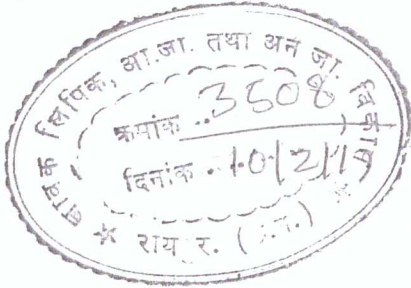 आवक लिपिक, आ.जा. तथा अन जा. विकास
क्रमांक ..3508
दिनांक .10/2/19
* राय र. ( .ग.) *